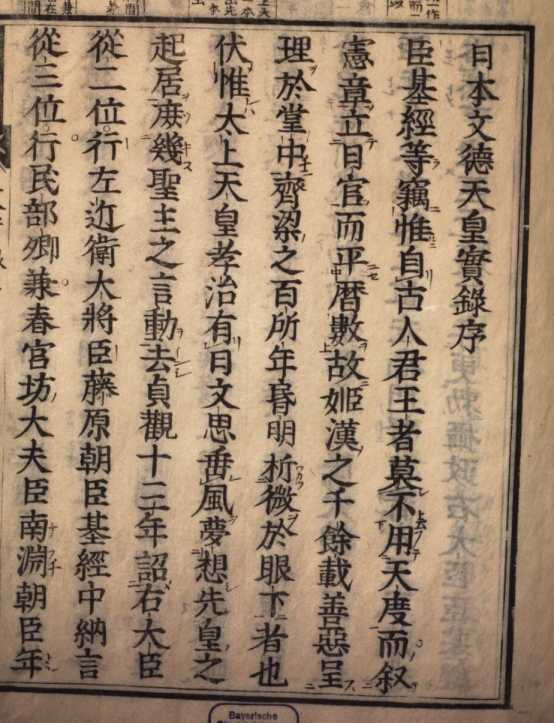 日本文德天皇實錄序
臣基經等竊惟自古人君王者莫不用天度而叙
憲章立日官而平暦數故姫漢之千餘載善惡呈
理於堂中齊梁之百所年昏明析微於眼下者也
伏惟太上天皇孝治有日文思垂風夢想先皇之
起居庶幾聖主之言動去貞觀十三年詔右大臣
從二位行左近衛大將臣藤原朝臣基經中納言
從三位行民部卿兼春宮坊大夫臣南淵朝臣年
Bayerische